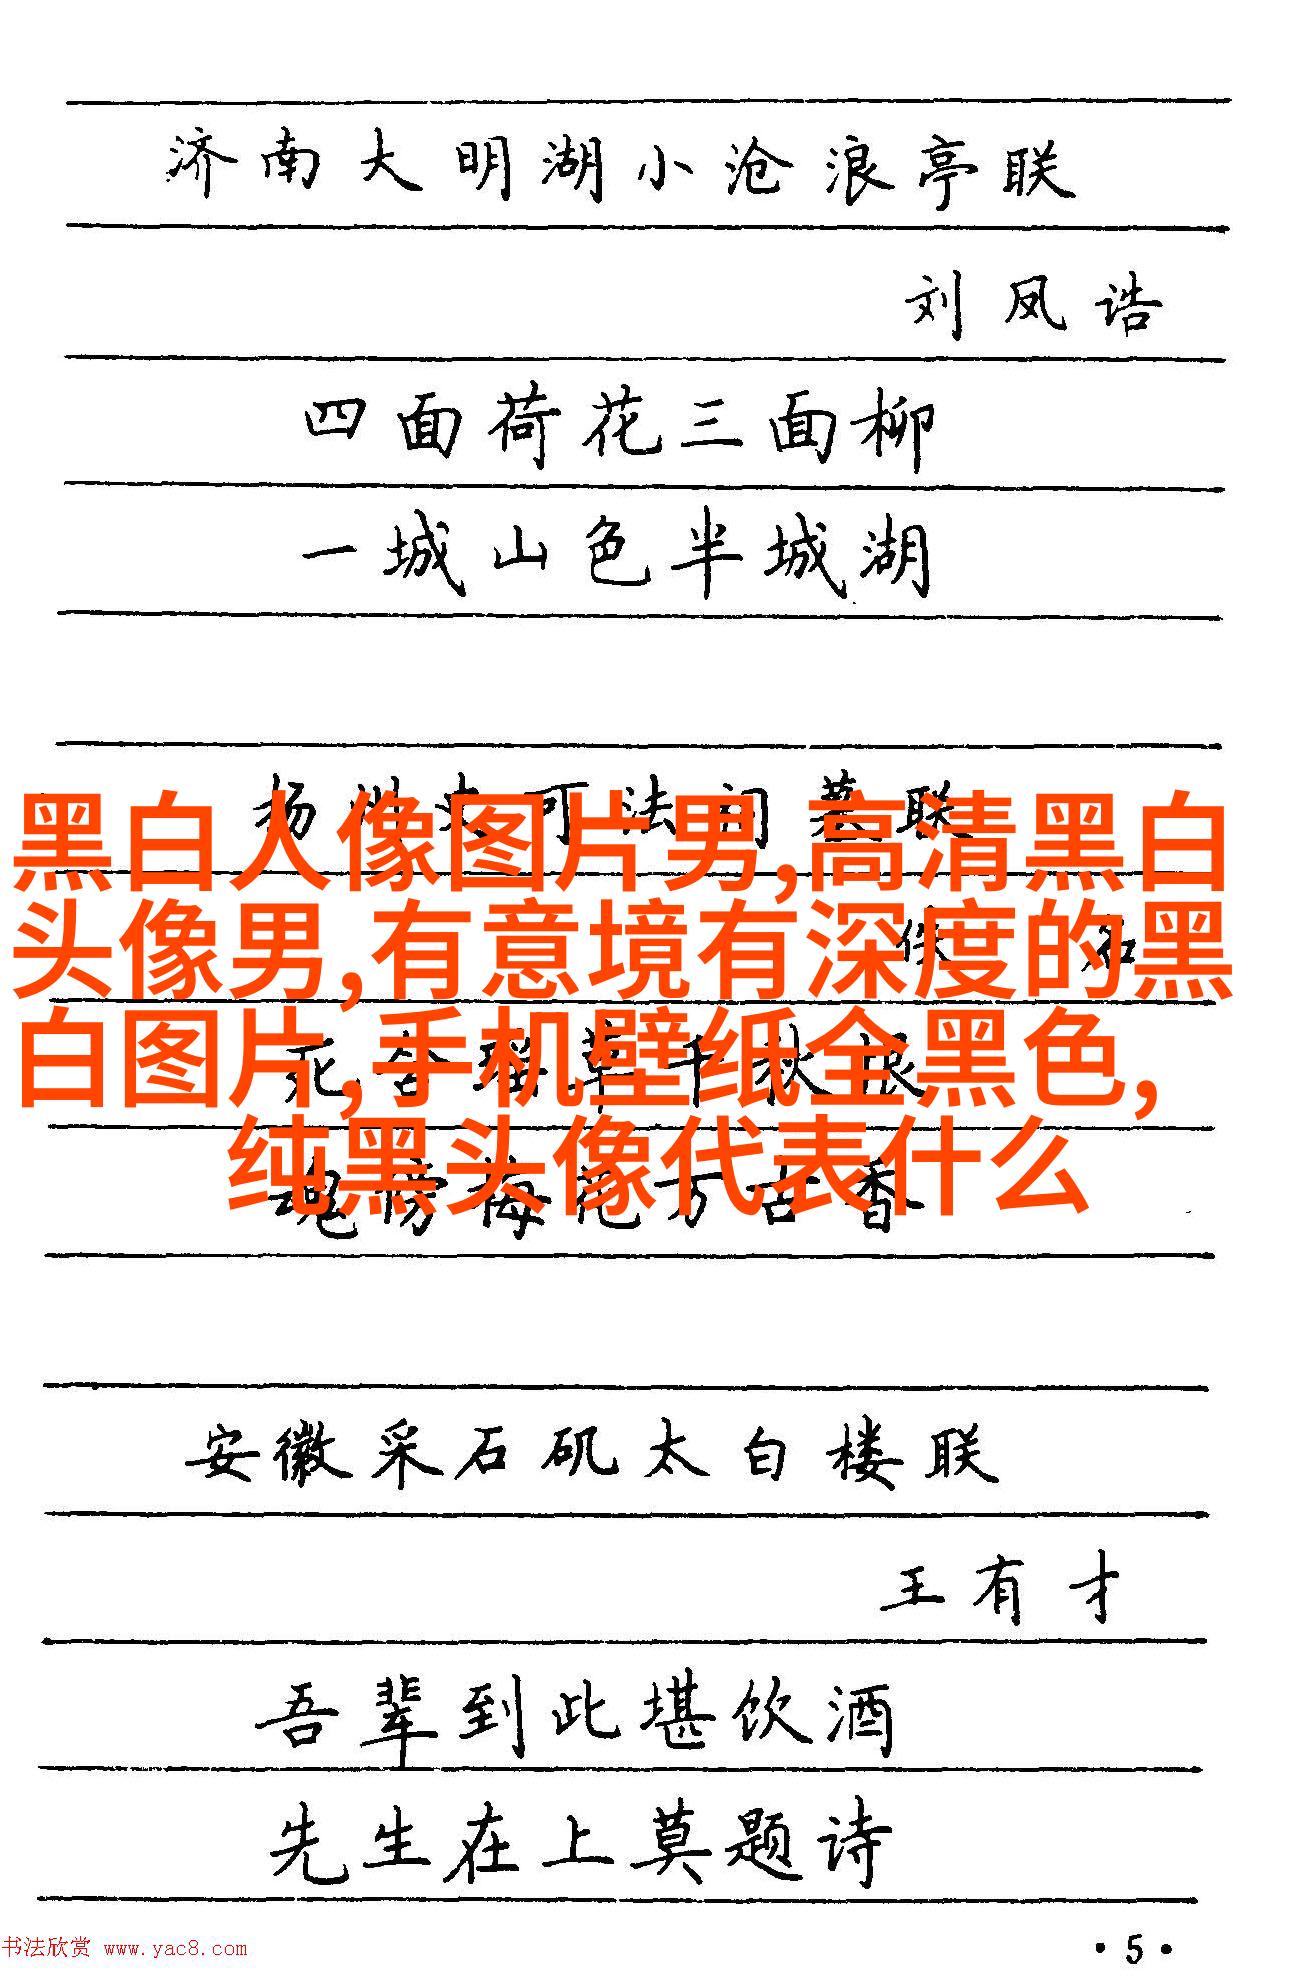 济南大明湖小沧浪亭联
刘凤诰
四面荷花三面柳
一城山色半城湖
扬州史可法祠墓联
黑白人像图片男,高清黑白
佚名
头像男,有意境有深度的黑
草千秋恨
白图片,手机壁纸全黑色,
纯黑头像代表什么
魂傍梅花万古香
安徽采石矶太白楼联
王有才
吾辈到此堪饮酒
先生在上莫题诗
书法欣赏 www.yac8.com
·5·